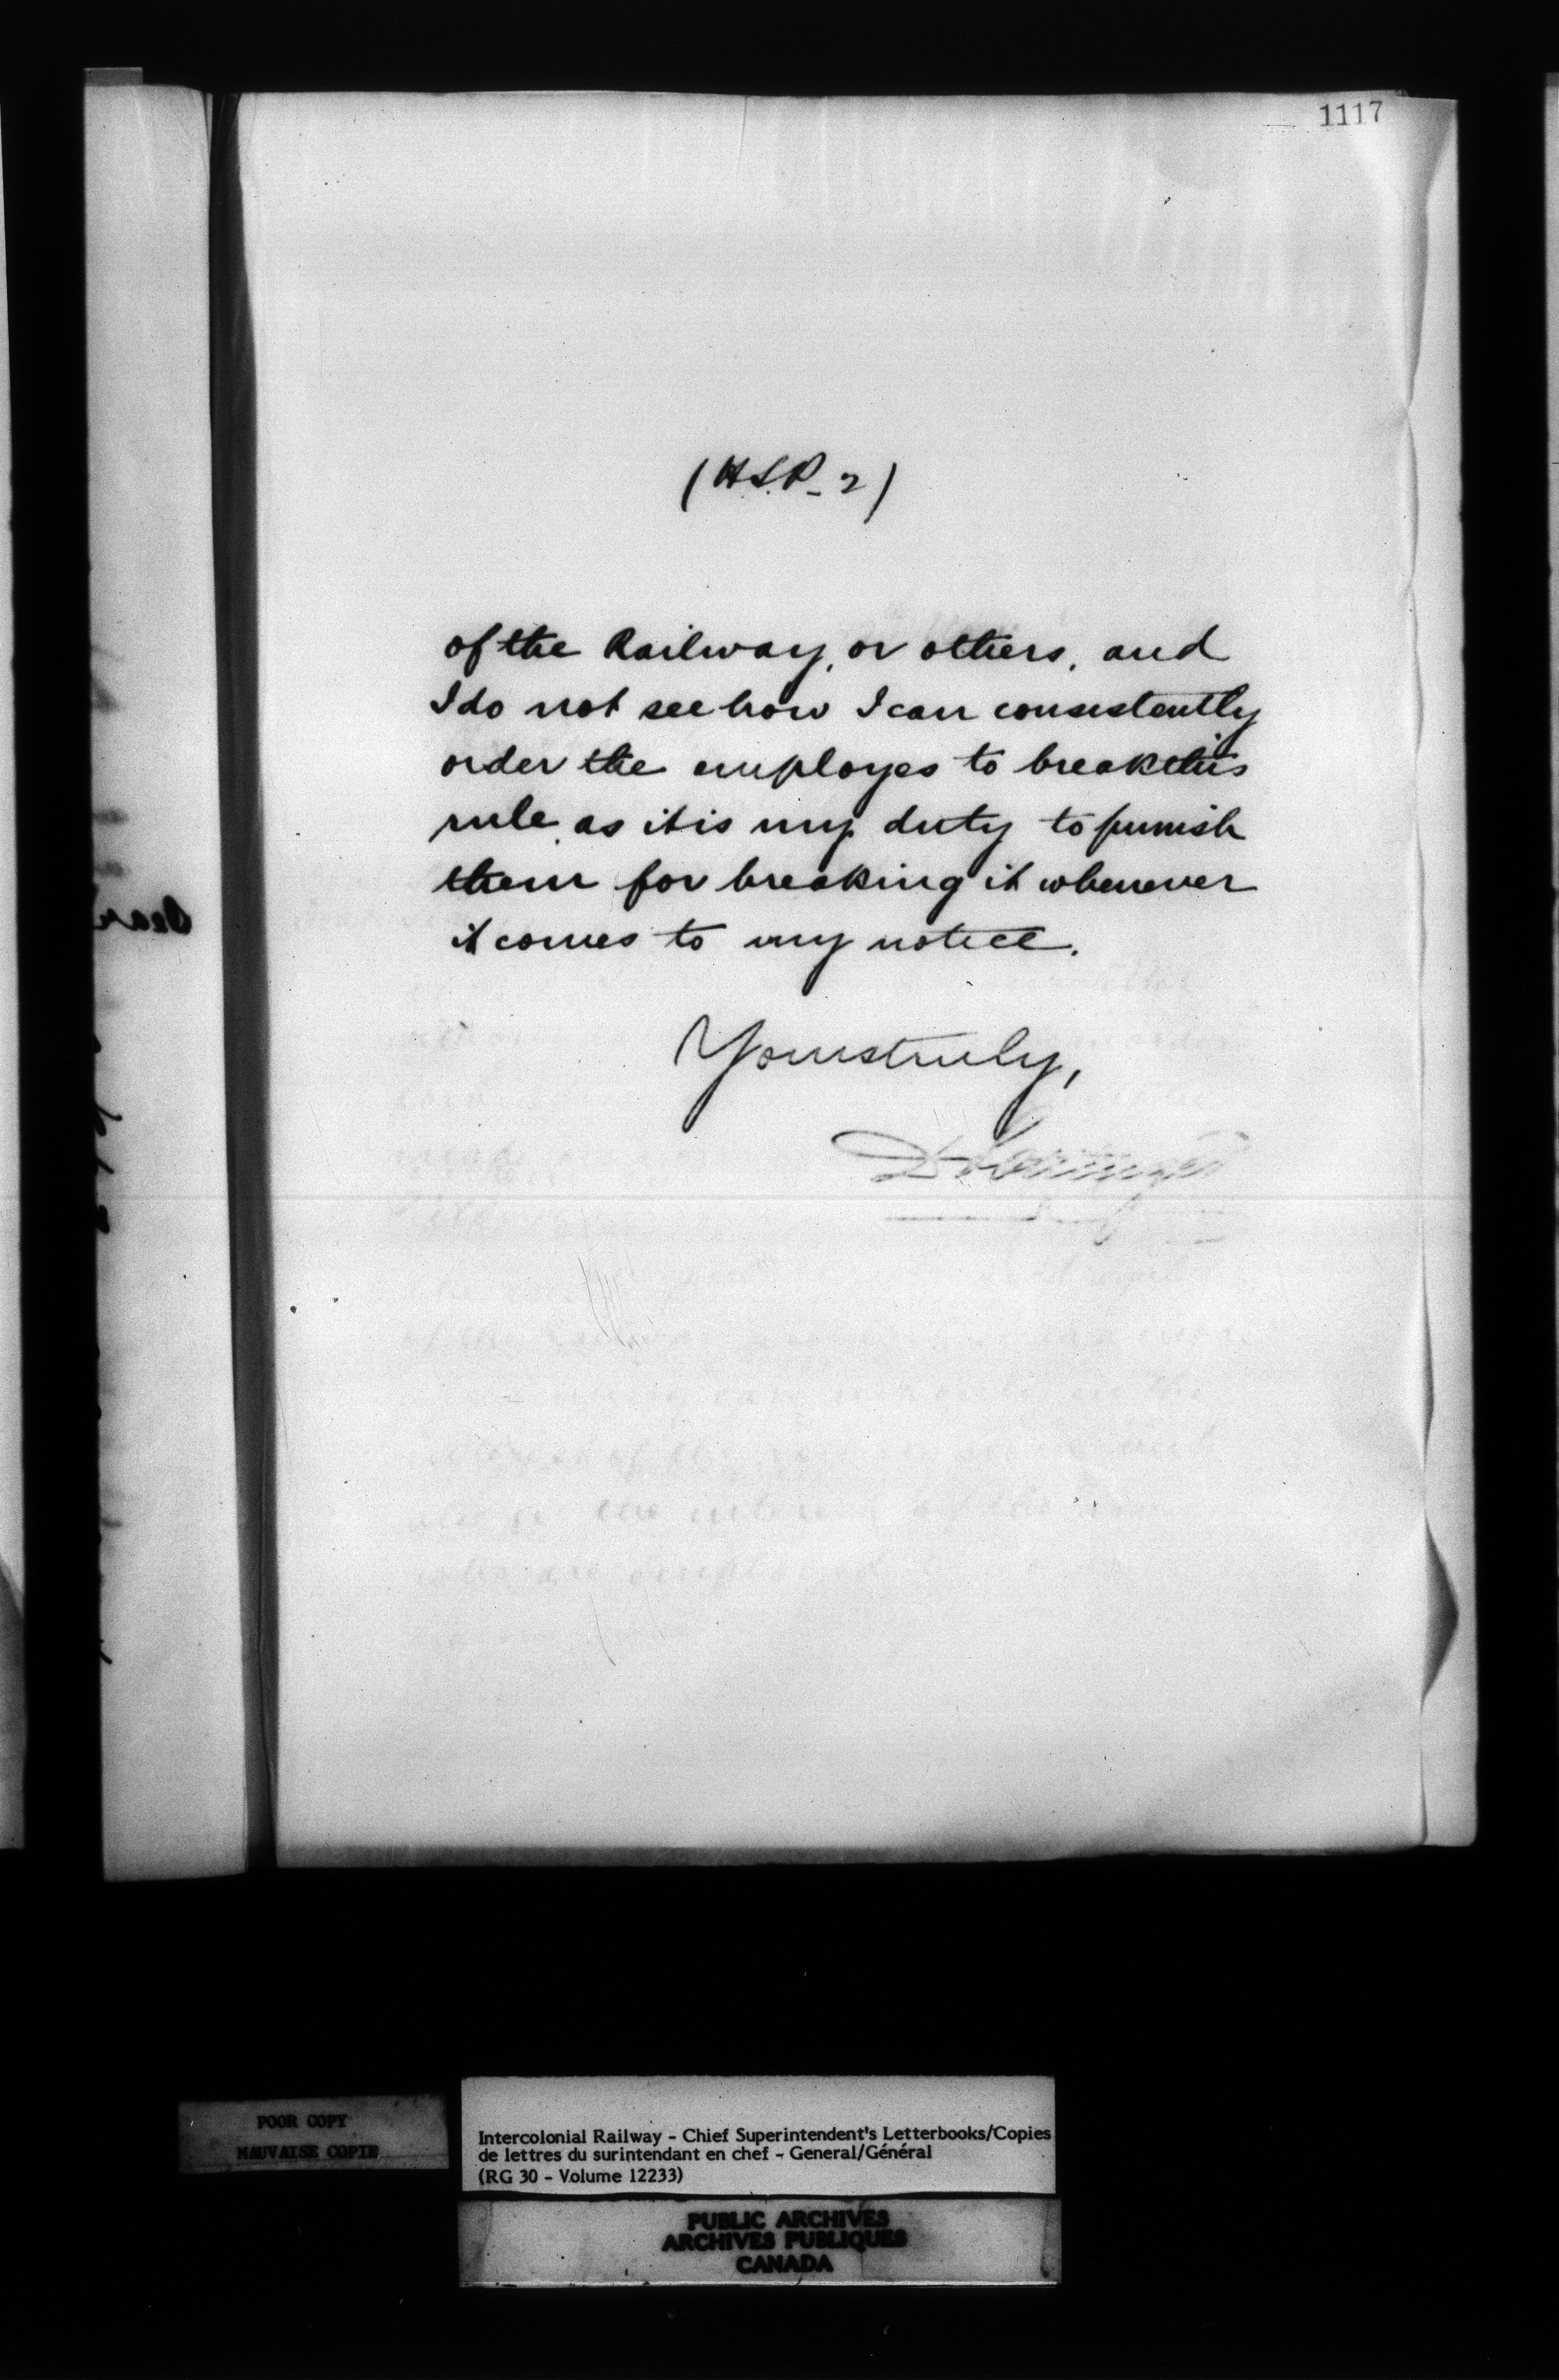 1117
(H.S.P. - 2)
of the Railway, or others, and
I do not see how I can consistently
order the employes to break this
rule, as it is my duty to punish
them for breaking it whenever
it comes to my notice.
Yours truly,
Dear
POOR COPY
MAUVAISE COPIE
Intercolonial Railway - Chief Superintendent's Letterbooks/Copies
de lettres du surintendant en chef - General/Général
(RG 30 - Volume 12233)
PUBLIC ARCHIVES
ARCHIVES PUBLIQUES
CANADA